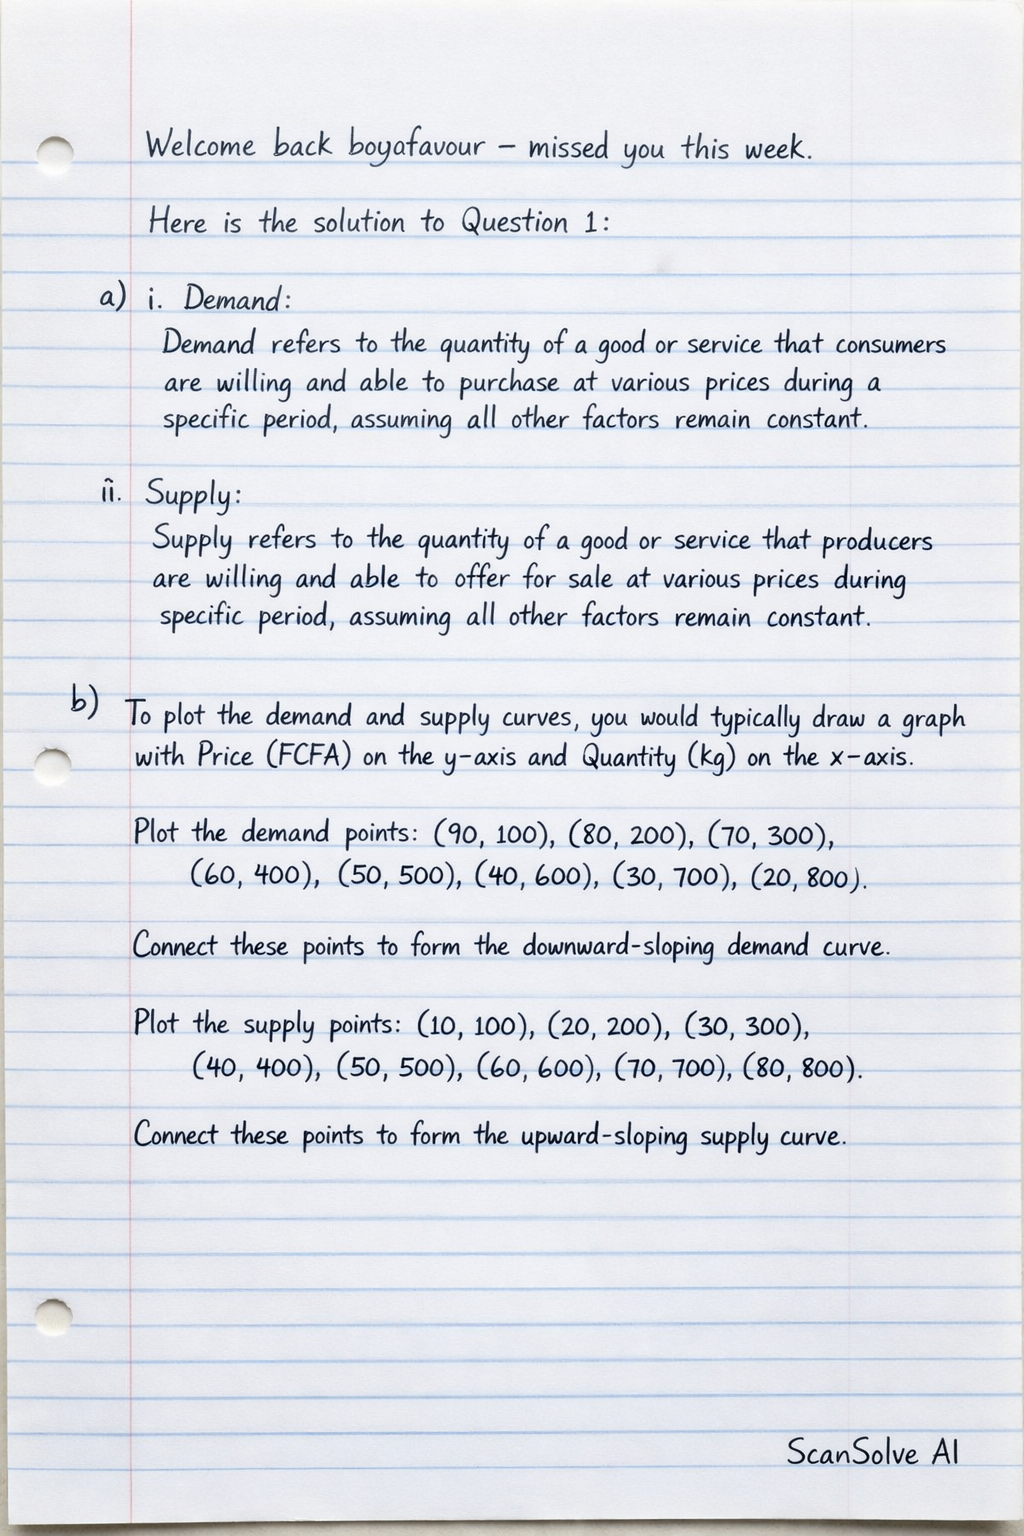 Welcome back boyafavour – missed you this week.
Here is the solution to Question 1:
a) i. Demand:
Demand refers to the quantity of a good or service that consumers
are willing and able to purchase at various prices during a
specific period, assuming all other factors remain constant.
ii. Supply:
Supply refers to the quantity of a good or service that producers
are willing and able to offer for sale at various prices during
specific period, assuming all other factors remain constant.
b) To plot the demand and supply curves, you would typically draw a graph
with Price (FCFA) on the y-axis and Quantity (kg) on the x-axis.
Plot the demand points: (90, 100), (80, 200), (70, 300),
(60, 400), (50, 500), (40, 600), (30, 700), (20, 800).
Connect these points to form the downward-sloping demand curve.
Plot the supply points: (10, 100), (20, 200), (30, 300),
(40, 400), (50, 500), (60, 600), (70, 700), (80, 800).
Connect these points to form the upward-sloping supply curve.
ScanSolve AI